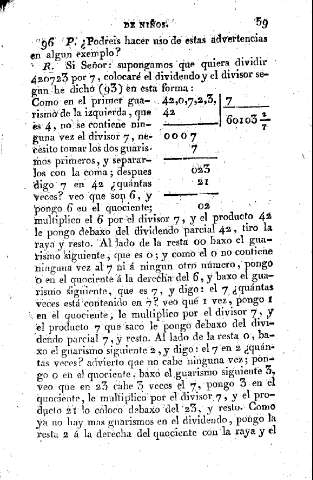 DE NIÑOS. 59
96 P. ¿Podreis hacer uso de estas advertencias
en algun exemplo?
R. Si Señor: supongamos que quiera dividir
420723 por 7, colocaré el dividendo y el divisor se-
gun he dicho (93) en esta forma:
Como en el primer gua-
rismo de la izquierda, que
es 4, no se contiene nin-
guna vez el divisor 7, ne-
cesito tomar los dos guaris-
mos primeros, y separar-
los con la coma; despues
digo 7 en 42 ¿quántas
veces? veo que son 6, y
pongo 6 en el quociente;
42,0,7,2,3, 7
42 60103 2/7
0007
7
023
21
02
multiplico el 6 por el divisor 7, y el producto 42
le pongo debaxo del dividendo parcial 42, tiro la
raya y resto. Al lado de la resta 00 baxo el gua-
rismo siguiente, que es 0; y como el 0 no contiene
ninguna vez al 7 ni á ningun otro número, pongo
0 en el quociente á la derecha del 6, y baxo el gua-
rismo siguiente, que es 7, y digo: el 7 ¿quántas
veces está contenido en 7? veo que 1 vez, pongo 1
en el quociente, le multiplico por el divisor 7, y
el producto 7 que saco le pongo debaxo del divi-
dendo parcial 7, y resto. Al lado de la resta 0, ba-
xo el guarismo siguiente 2, y digo: el 7 en 2 ¿quán-
tas veces? advierto que no cabe ninguna vez; pon-
go 0 en el quociente. baxo el guarismo siguiente 3,
veo que en 23 cabe 3 veces el 7, pongo 3 en el
quociente, le multiplico por el divisor 7, y el pro-
ducto 21 lo coloco debaxo del 23, y resto. Como
ya no hay mas guarismos en el dividendo, pongo la
resta 2 á la derecha del quociente con la raya y el